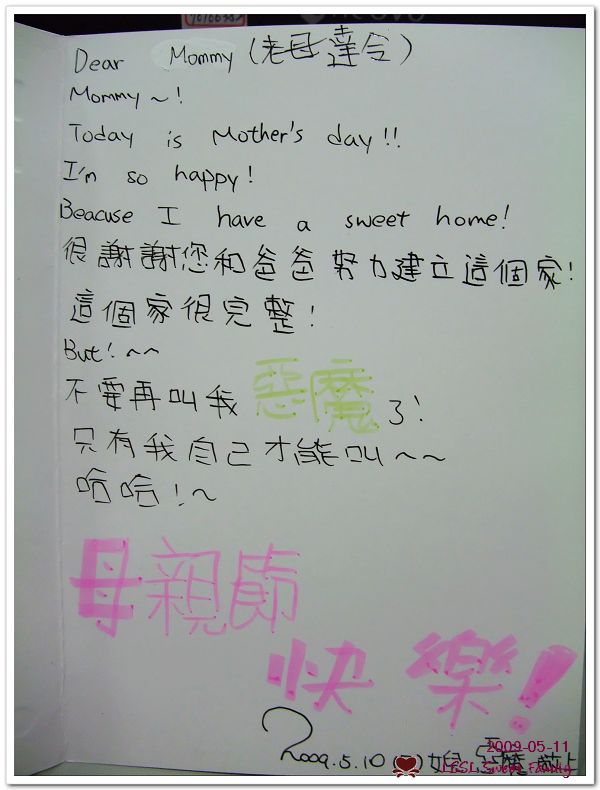 Dear Mommy (老母達令)
Mommy~!
Today is Mother's day!!
I'm so happy!
Beacuse I have a sweet home!
很謝謝您和爸爸努力建立這個家!
這個家很完整!
But!~~
不要再叫我惡魔了!
只有我自己才能叫~~
哈哈!~
母親節
快樂!
2009.5.10
2009-05-11
Sweet Family